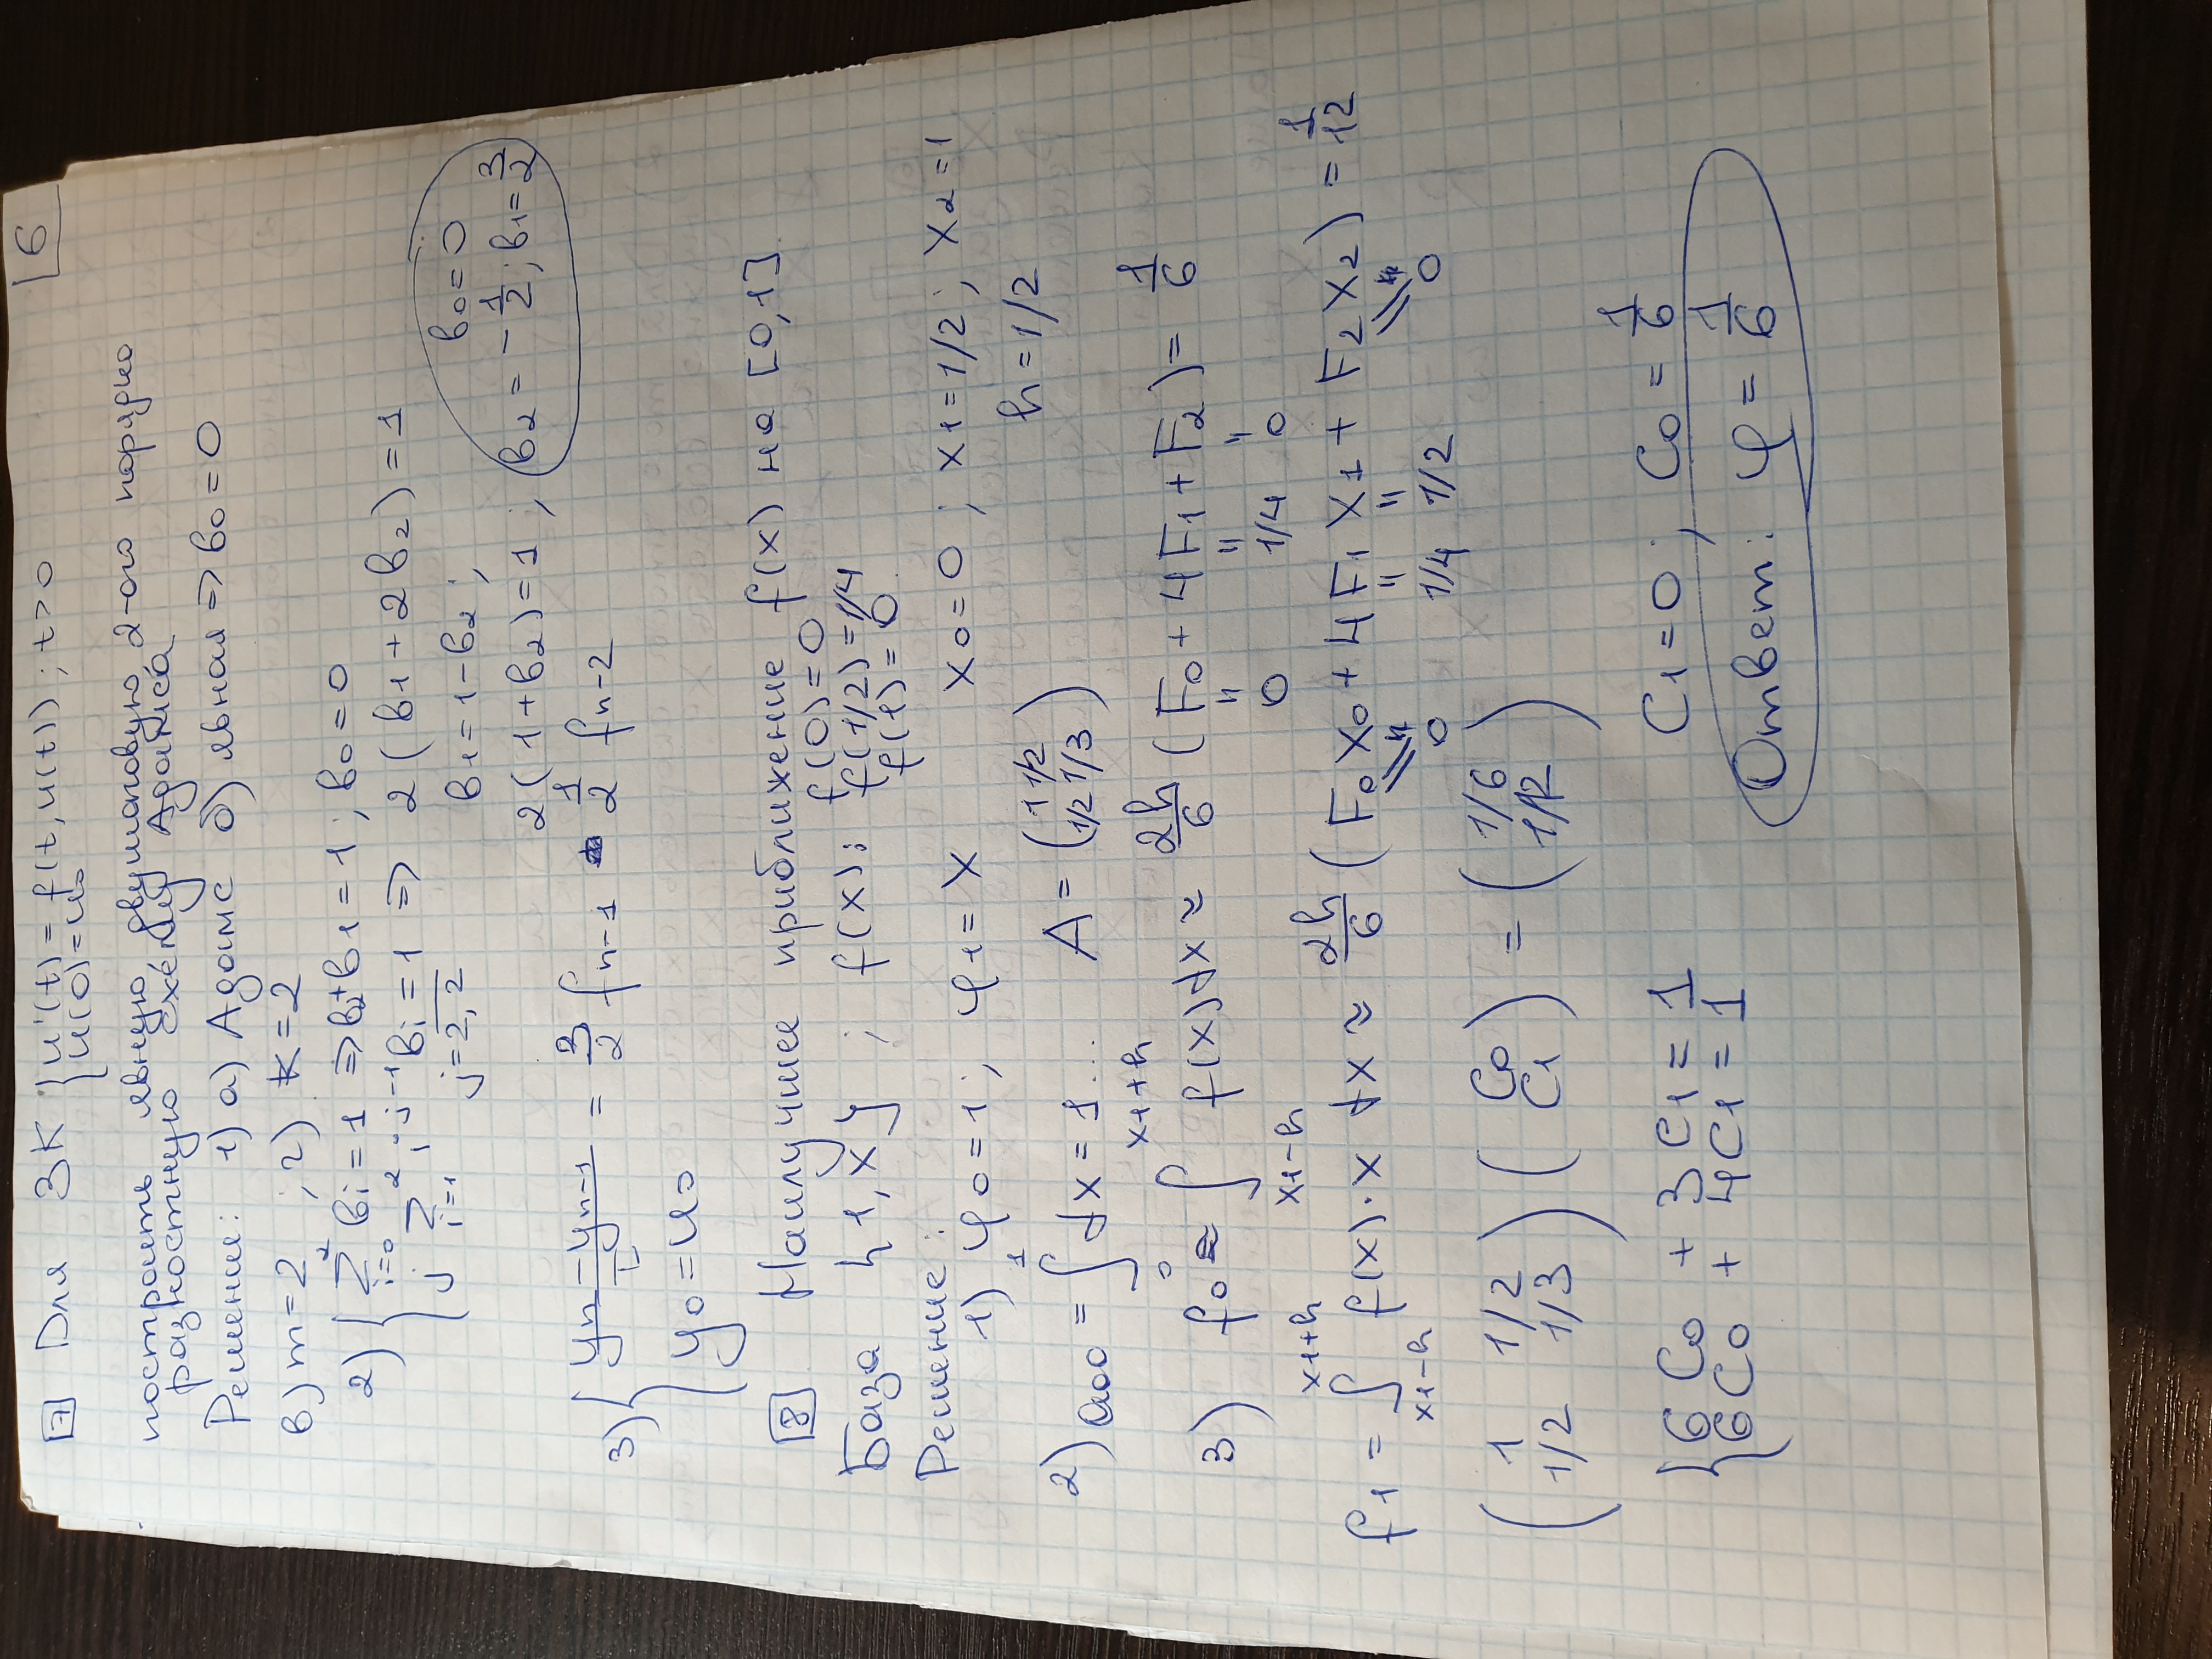 6
7 Для ЗК { u'(t) = f(t, u(t)) ; t>0
u(0)=u₀
построить явную двушаговую 2-ого порядка
разностную схему Адамса
Решение: 1) а) Адамс б) явная => b₀=0
в) m=2 ; г) k=2
2) { Σ_{i=0}^{2} bᵢ = 1 => b₂+b₁ = 1 ; b₀=0
j Σ_{i=1}^{2} i^{j-1} bᵢ = 1 => 2(b₁+2b₂)=1
j=2,2
b₁=1-b₂ ;
2(1+b₂)=1 ;
b₀=0
b₂ = -1/2 ; b₁ = 3/2
3) { (yₙ - yₙ₋₁)/τ = 3/2 fₙ₋₁ - 1/2 fₙ₋₂
y₀=u₀
8 Наилучшее приближение f(x) на [0,1]
База {1,x} ; f(x): f(0)=0
f(1/2)=1/4
f(1)=0
Решение:
1) φ₀=1 ; φ₁=x x₀=0 ; x₁=1/2 ; x₂=1
h=1/2
2) a₀₀ = ∫₀¹ dx = 1... A = (1 1/2
1/2 1/3)
3) f₀ = ∫_{x₁-h}^{x₁+h} f(x)dx ≈ 2h/6 (F₀ + 4F₁ + F₂) = 1/6
0 1/4 0
f₁ = ∫_{x₁-h}^{x₁+h} f(x)·x dx ≈ 2h/6 (F₀x₀ + 4F₁x₁ + F₂x₂) = 1/12
0 1/4 1/2 0
(1 1/2
1/2 1/3) (C₀
C₁) = (1/6
1/12)
{ 6C₀ + 3C₁ = 1
6C₀ + 4C₁ = 1
C₁=0 ; C₀ = 1/6
Ответ: φ = 1/6